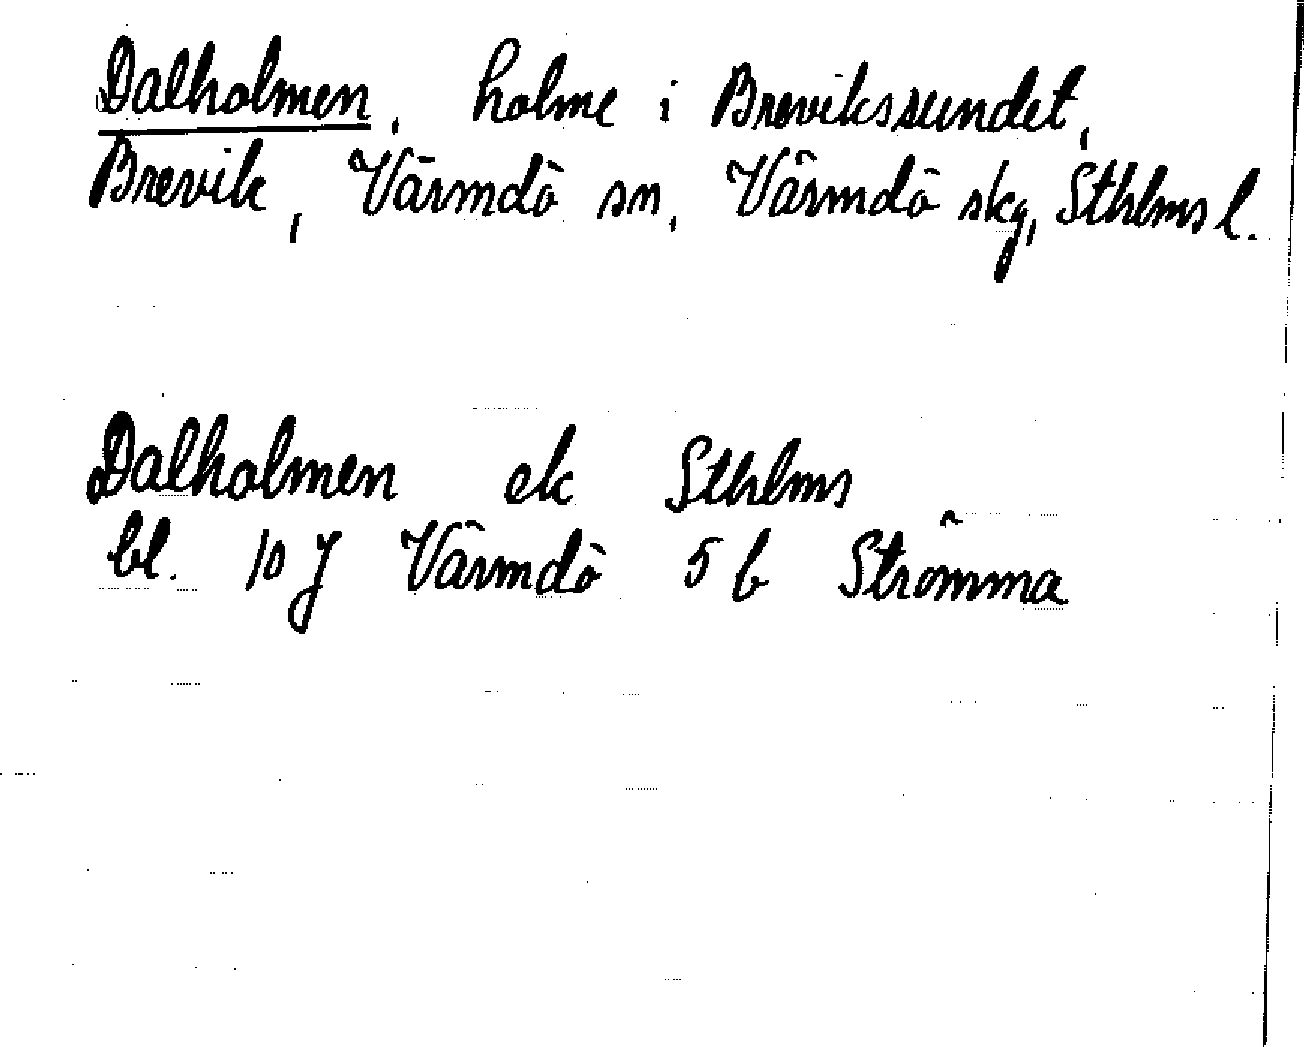 Dalholmen, holme i Brevikssundet,
Brevik, Värmdö sn, Värmdö skg, Sthlms l.
Dalholmen ek Sthlms
bl. 10 J Värmdö 5 b Strömma